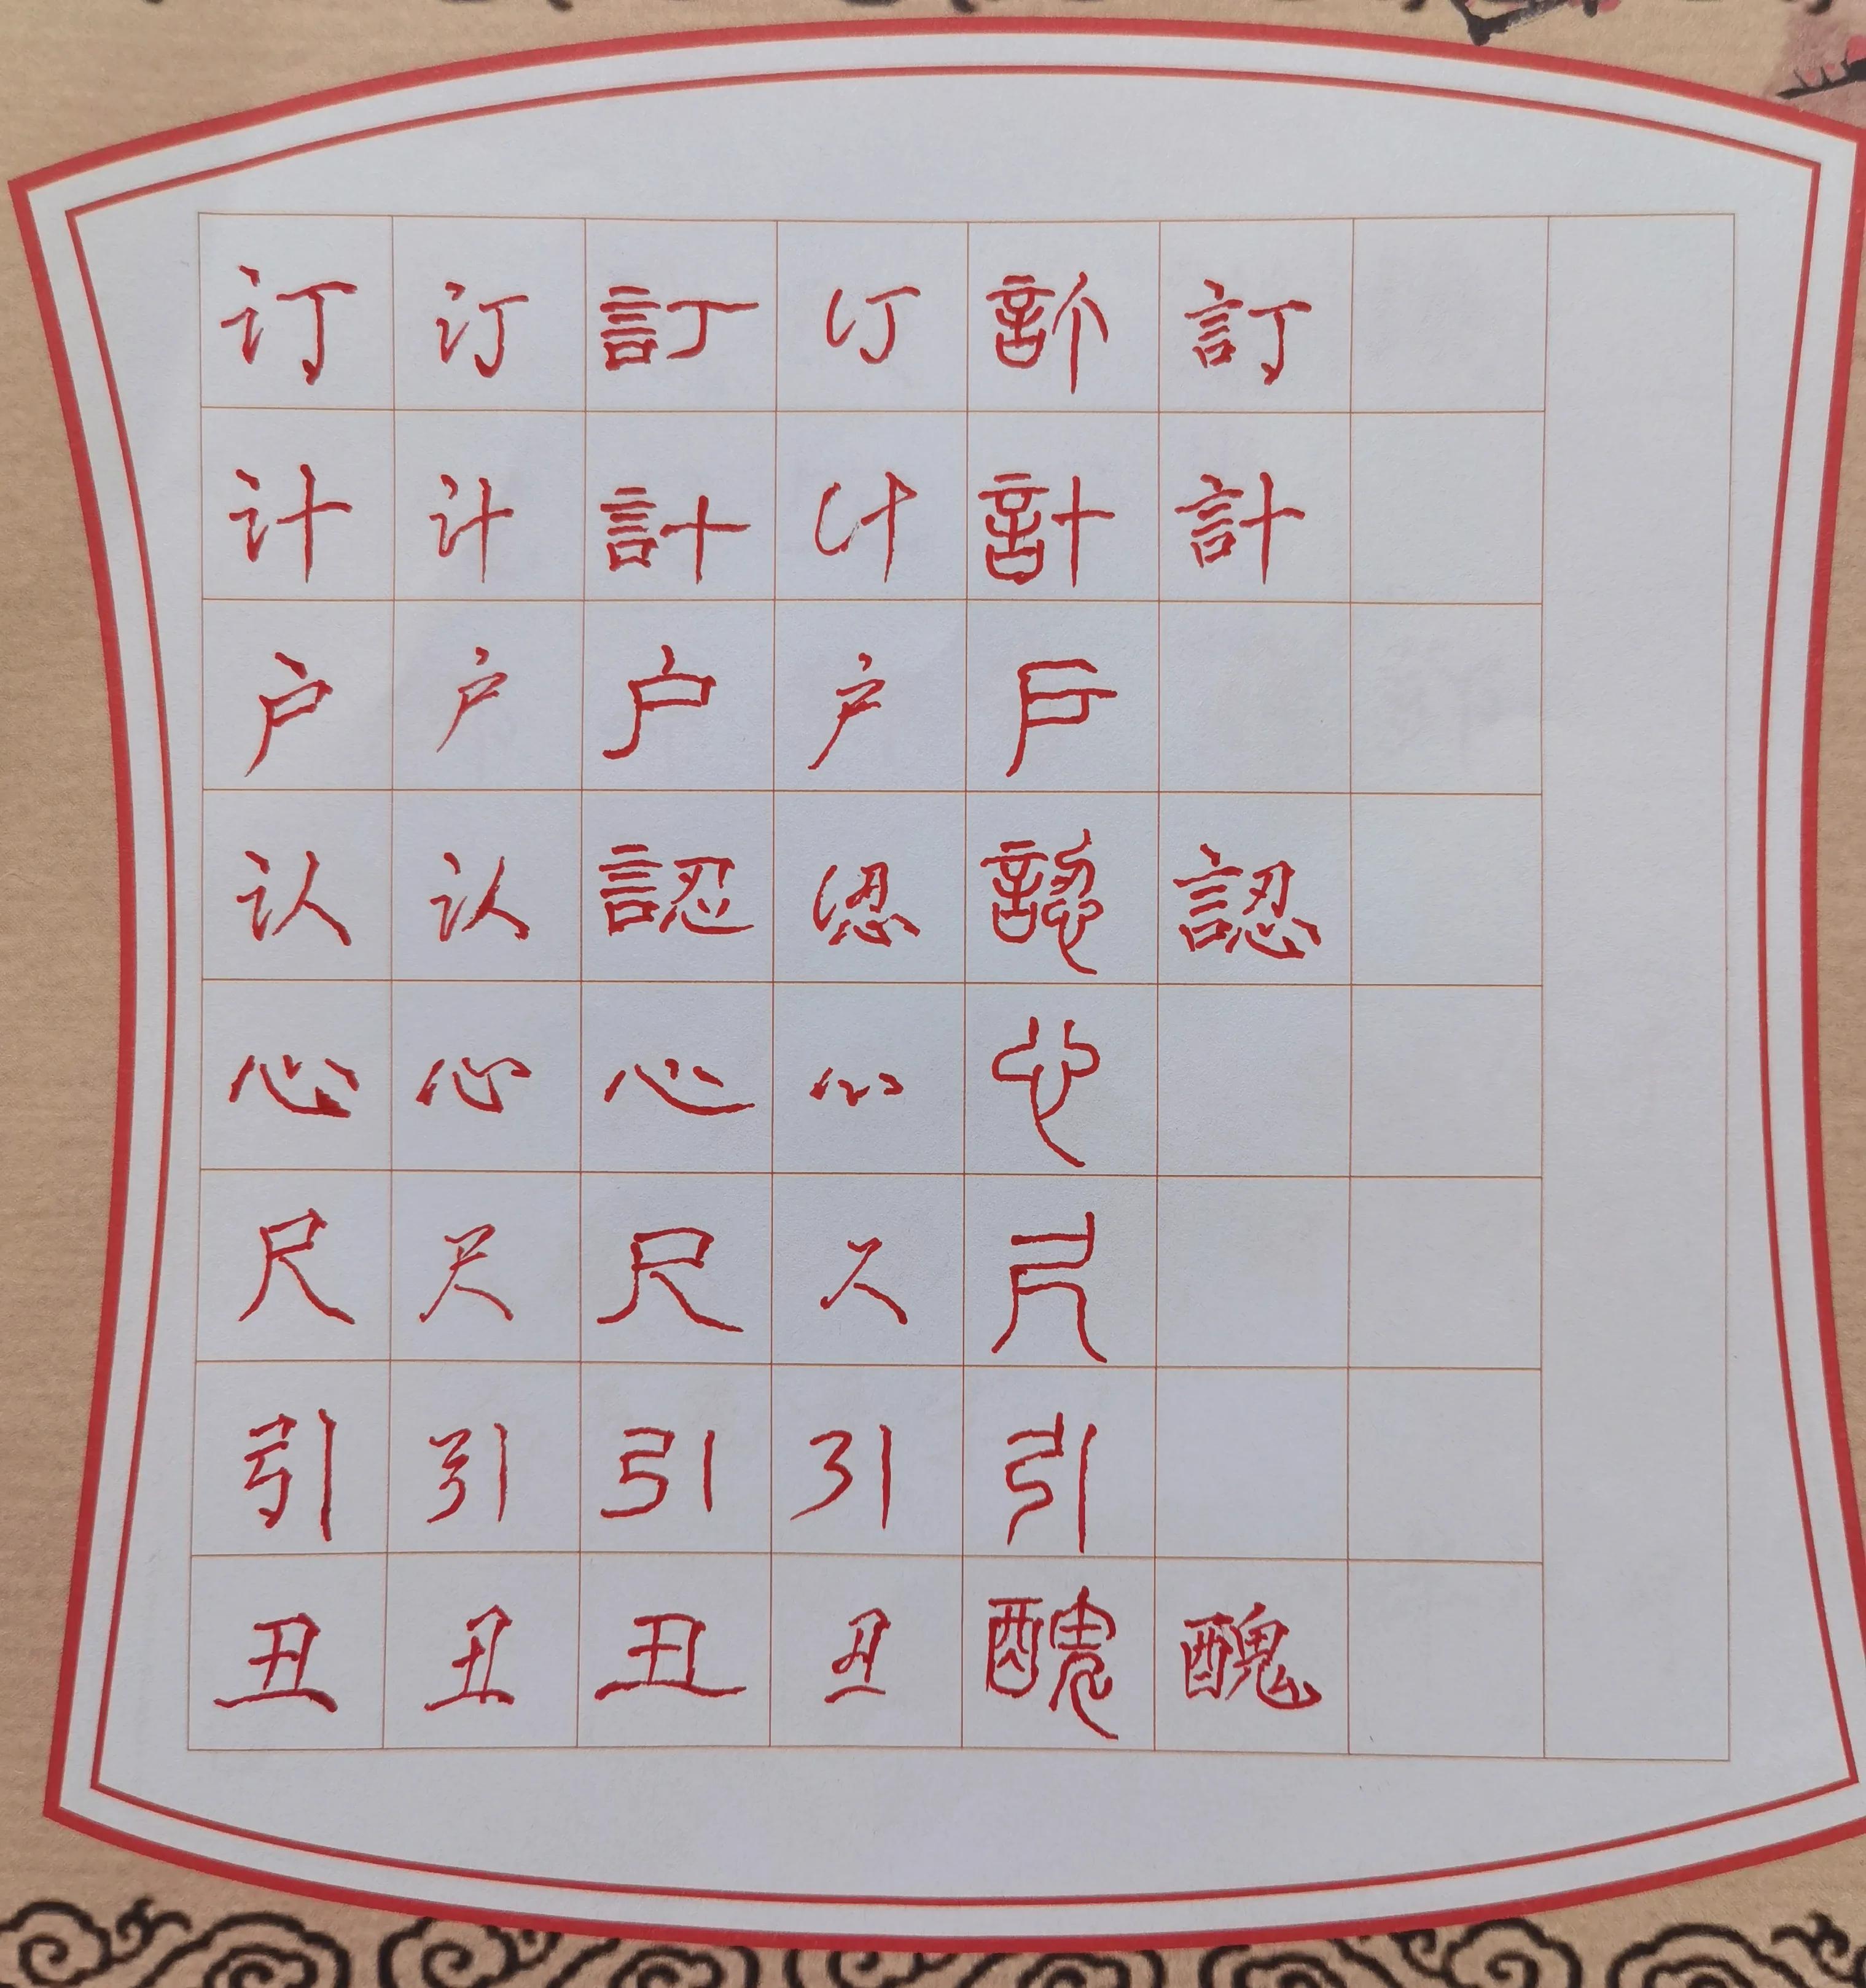 订 订 訂 订 訂 訂
计 计 計 计 計 計
户 户 户 户 戶
认 认 認 認 認 認
心 心 心 心 心
尺 尺 尺 尺 尺
引 引 引 引 引
丑 丑 丑 丑 醜 醜